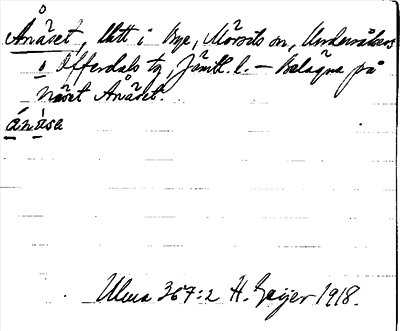 Ånäset, Utt i Bye, Mörsils sn, Undersåkers
o Offerdals tg, Jämtl. l. – Belägna på
näset Ånäset.
ánäse
Ulma 367:2 H. Geijer 1918.